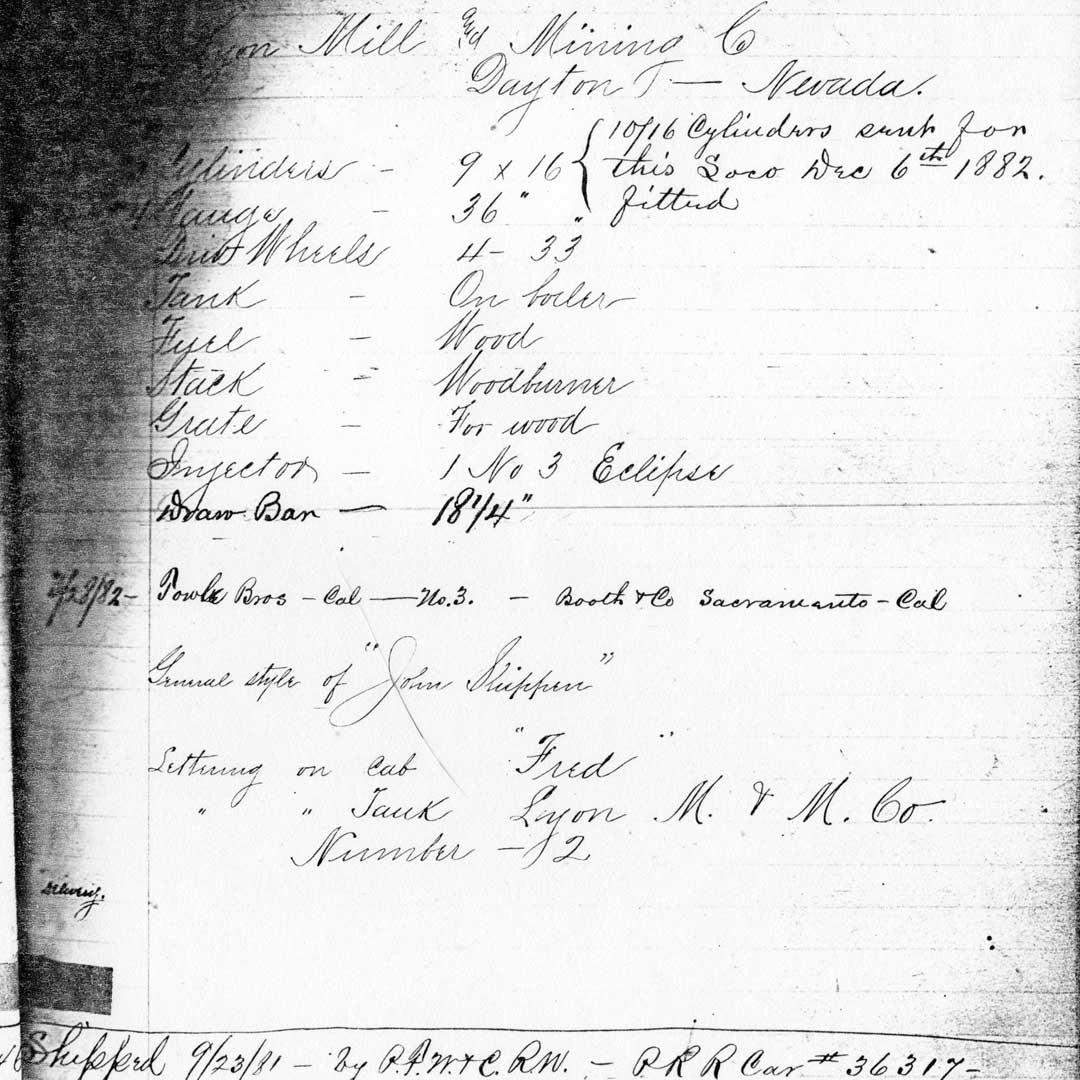 Lyon Mill and Mining Co
Dayton T — Nevada.
Cylinders - 9 x 16 { 10/16 Cylinders sent for
this Loco Dec 6th 1882.
fitted
Gauge - 36"
Drive Wheels 4 - 33"
Tank - On boiler
Fuel - Wood
Stack - Woodburner
Grate - For wood
Injector - 1 No 3 Eclipse
Draw Bar — 18 1/4"
Towle Bros - Cal — No. 3. - Booth & Co Sacramento - Cal
General style of "John Shippen"
Lettering on cab "Fred"
" " Tank Lyon M. & M. Co.
Number - 2
Delivery.
Shipped 9/23/81 - by P.F.W. & C. R.W. - P R R Car # 36317 -